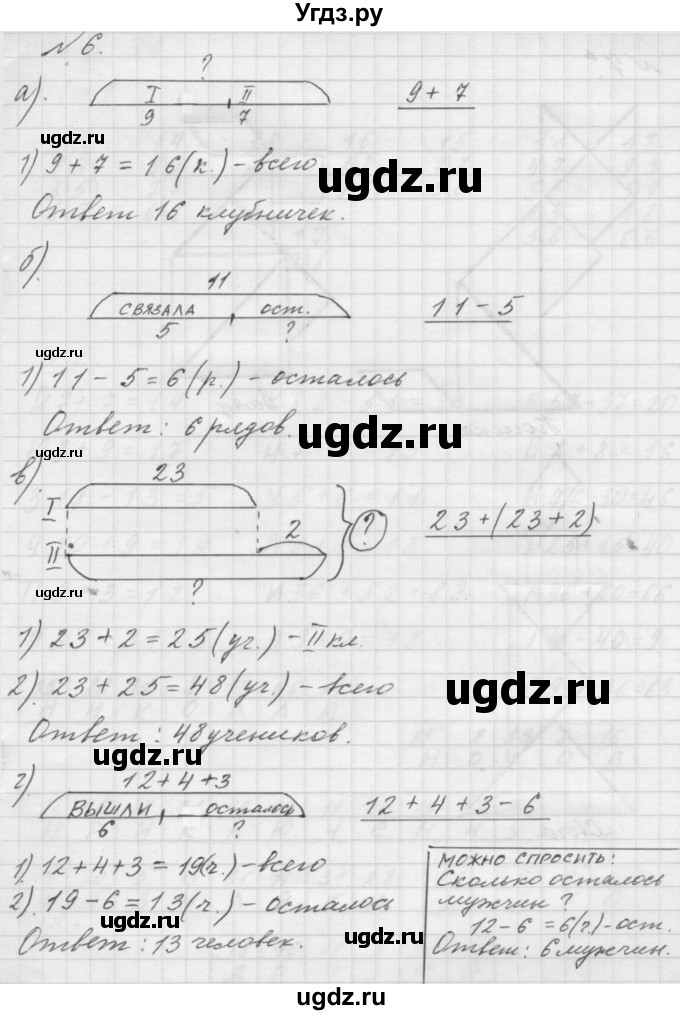 Угдз.ру
№ 6.
?
а). I II 9 + 7
9 7
ugdz.ru
1) 9 + 7 = 16 (к.) – всего
ugdz.ru
Ответ 16 клубничек.
б). 11
СВЯЗАЛА ост. 11 – 5
5 ?
ugdz.ru
1) 11 – 5 = 6 (р.) – осталось
Ответ : 6 рядов.
ugdz.ru
ugdz.ru
в) 23
I
2 ? 23 + (23 + 2)
II
ugdz.ru
?
1) 23 + 2 = 25 (уч.) – II кл.
2). 23 + 25 = 48 (уч.) – всего
ugdz.ru
Ответ : 48 учеников.
ugdz.ru
г). 12 + 4 + 3
ВЫШЛИ осталось 12 + 4 + 3 – 6
6 ?
1). 12 + 4 + 3 = 19 (ч.) – всего
2). 19 – 6 = 13 (ч.) – осталось
Ответ : 13 человек.
МОЖНО СПРОСИТЬ :
Сколько осталось
мужчин ?
12 – 6 = 6 (ч.) – ост.
Ответ : 6 мужчин.
ugdz.ru
ugdz.ru